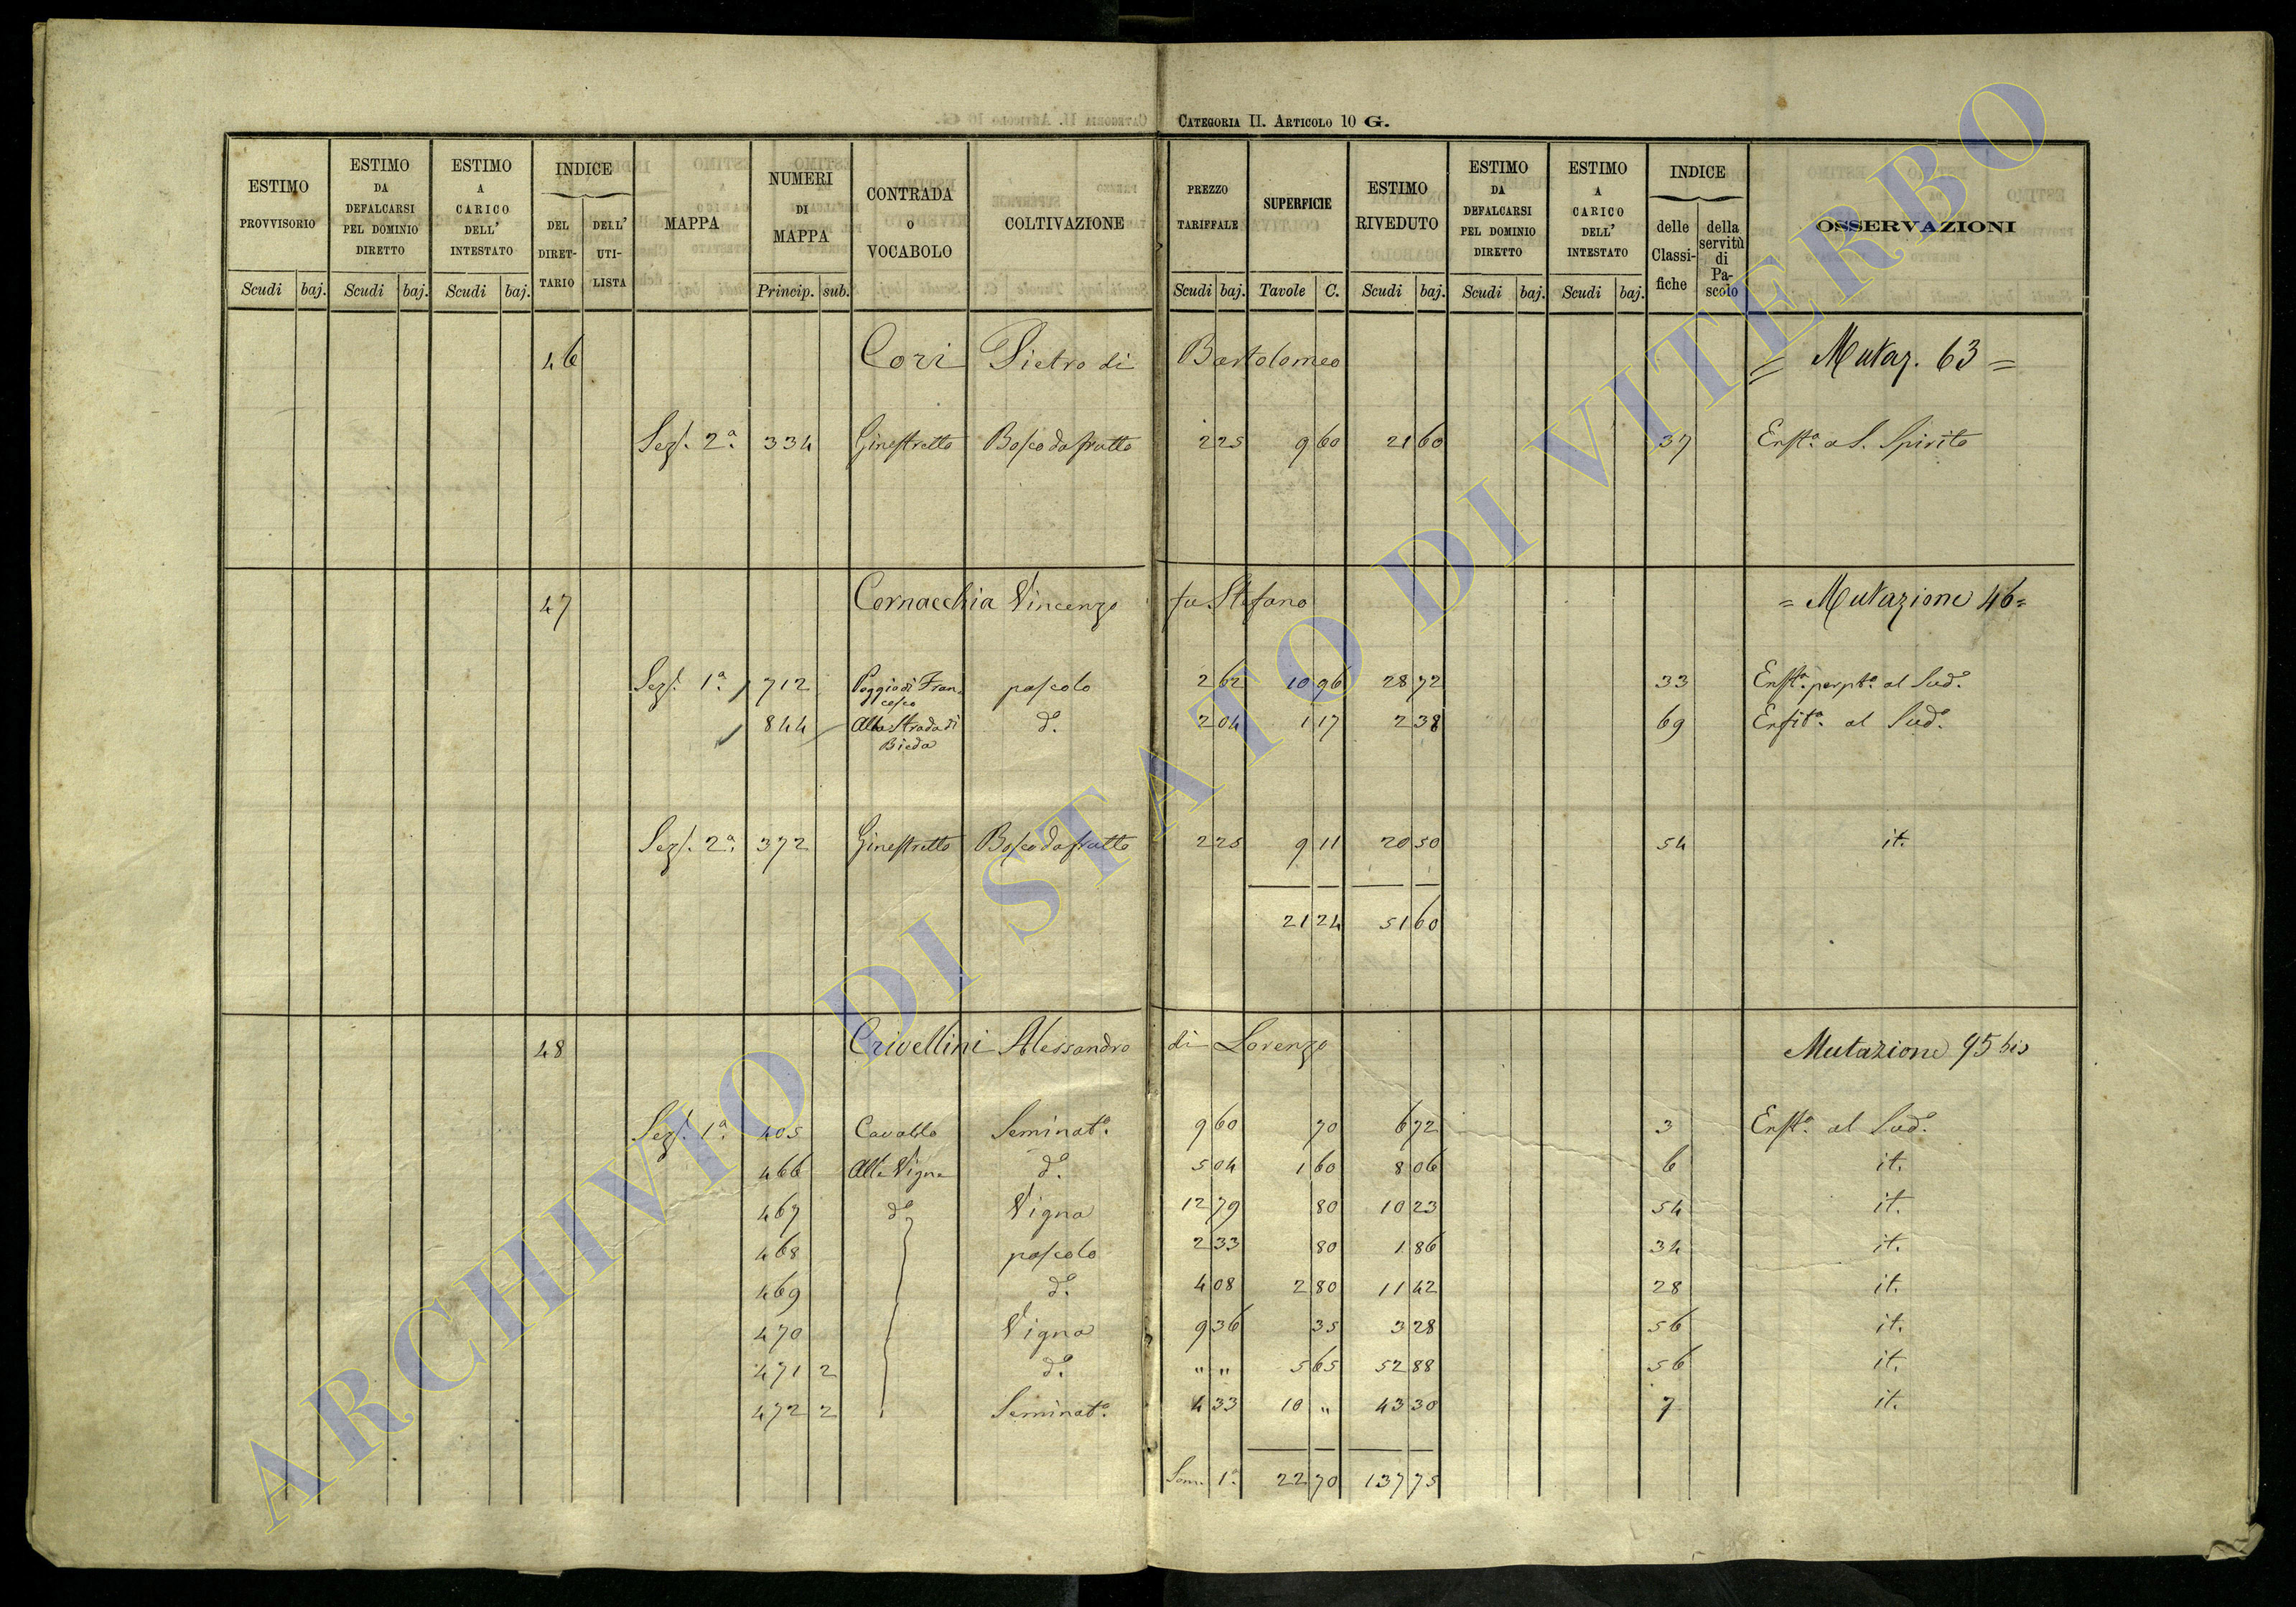 CATEGORIA II. ARTICOLO 10 G.
ESTIMO PROVVISORIO Scudi baj.
ESTIMO DA DEFALCARSI PEL DOMINIO DIRETTO Scudi baj.
ESTIMO A CARICO DELL' INTESTATO Scudi baj.
INDICE DEL DIRET- TARIO DELL' UTI- LISTA
MAPPA
NUMERI DI MAPPA Princip. sub.
CONTRADA O VOCABOLO
COLTIVAZIONE
PREZZO TARIFFALE Scudi baj.
SUPERFICIE Tavole C.
ESTIMO RIVEDUTO Scudi baj.
ESTIMO DA DEFALCARSI PEL DOMINIO DIRETTO Scudi baj.
ESTIMO A CARICO DELL' INTESTATO Scudi baj.
INDICE delle Classi- fiche della servitù di Pa- scolo
OSSERVAZIONI
46 Cori Pietro di Bartolomeo = Mutaz. 63 =
Sez. 2a. 334 Ginestretto Bosco da frutto 2 25 9 60 21 60 37 Enfta. a S. Spirito
47 Cornacchia Vincenzo fu Stefano = Mutazione 46 =
Sez. 1a. 712 Poggio di Fran= cesco pascolo 2 62 10 96 28 72 33 Enfta. perpta. al Sudo.
844 Alla Strada di Bieda do. 2 04 1 17 2 38 69 Enfita. al Sudo.
Sez. 2a. 372 Ginestretto Bosco da frutto 2 25 9 11 20 50 54 it.
21 24 51 60
48 Crivellini Alessandro di Lorenzo Mutazione 95 bis
Sez. 1a. 405 Cavallo Seminato. 9 60 70 6 72 3 Enfta. al Sudo.
466 Alle Vigne do. 5 04 1 60 8 06 6 it.
467 do Vigna 12 79 80 10 23 54 it.
468 pascolo 2 33 80 1 86 34 it.
469 do. 4 08 2 80 11 42 28 it.
470 Vigna 9 36 35 3 28 56 it.
471 2 do. " " 5 65 52 88 56 it.
472 2 Seminato. 4 33 10 " 43 30 7 it.
Som. 1a. 22 70 137 75
ARCHIVIO DI STATO DI VITERBO